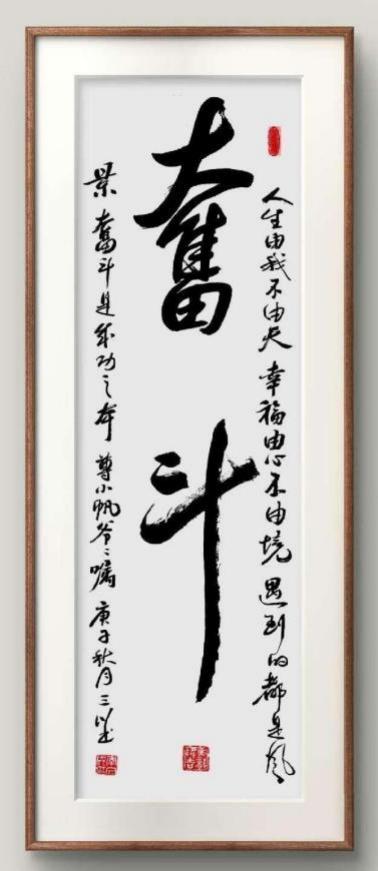 奮斗
人生由我不由天 幸福由心不由境 遇到的都是风
景 奮斗是成功之本 尊小帆爷爷嘱 庚子秋月三以书